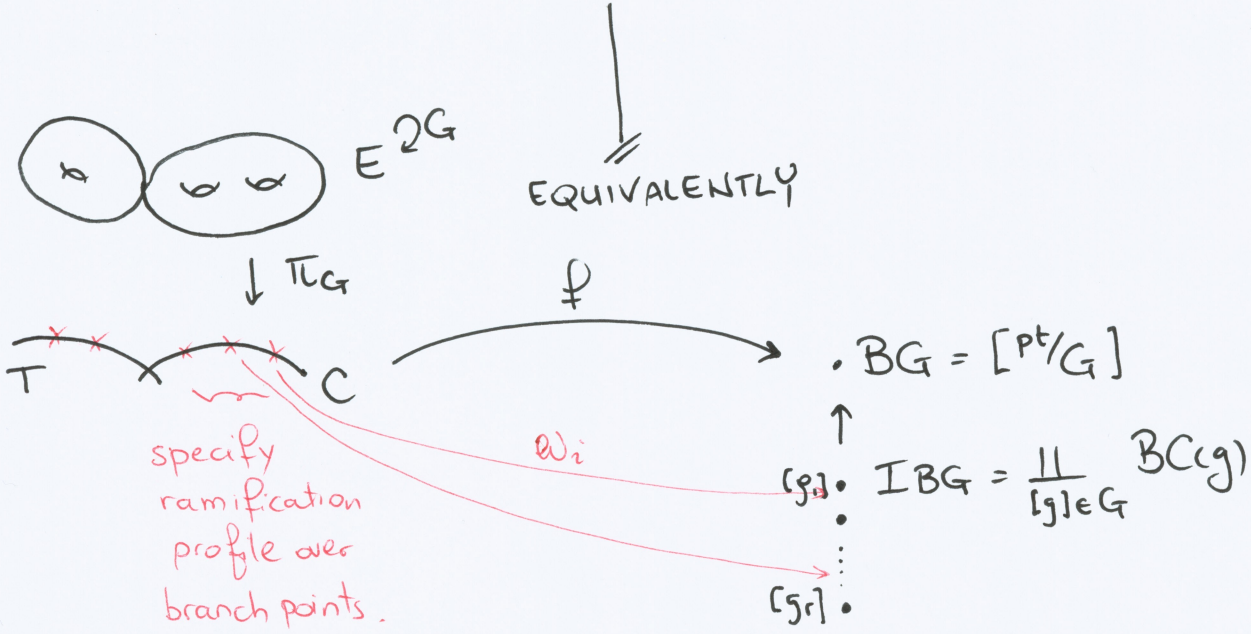 E G
EQUIVALENTLY
π_G
f
T
C
. BG = [pt/G]
specify
ramification
profile over
branch points.
ev_i
[g_1] . IBG = ∐_{[g]∈G} BC(g)
[g_r] .